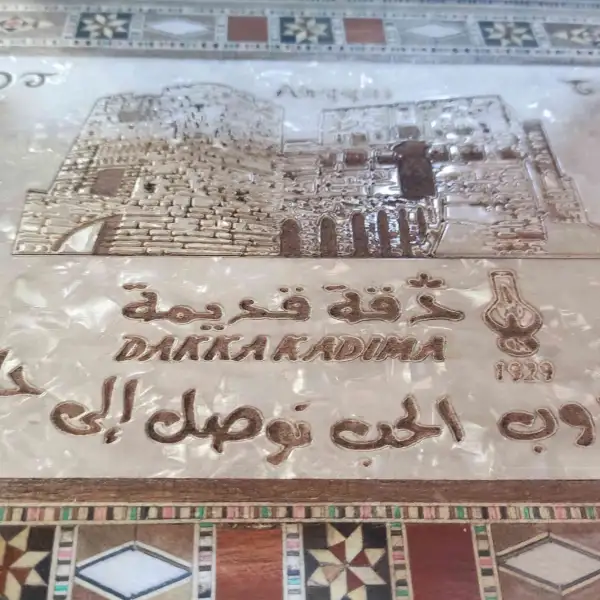 دقة قديمة
DAKKA KADIMA
1929
الحب توصل إلى